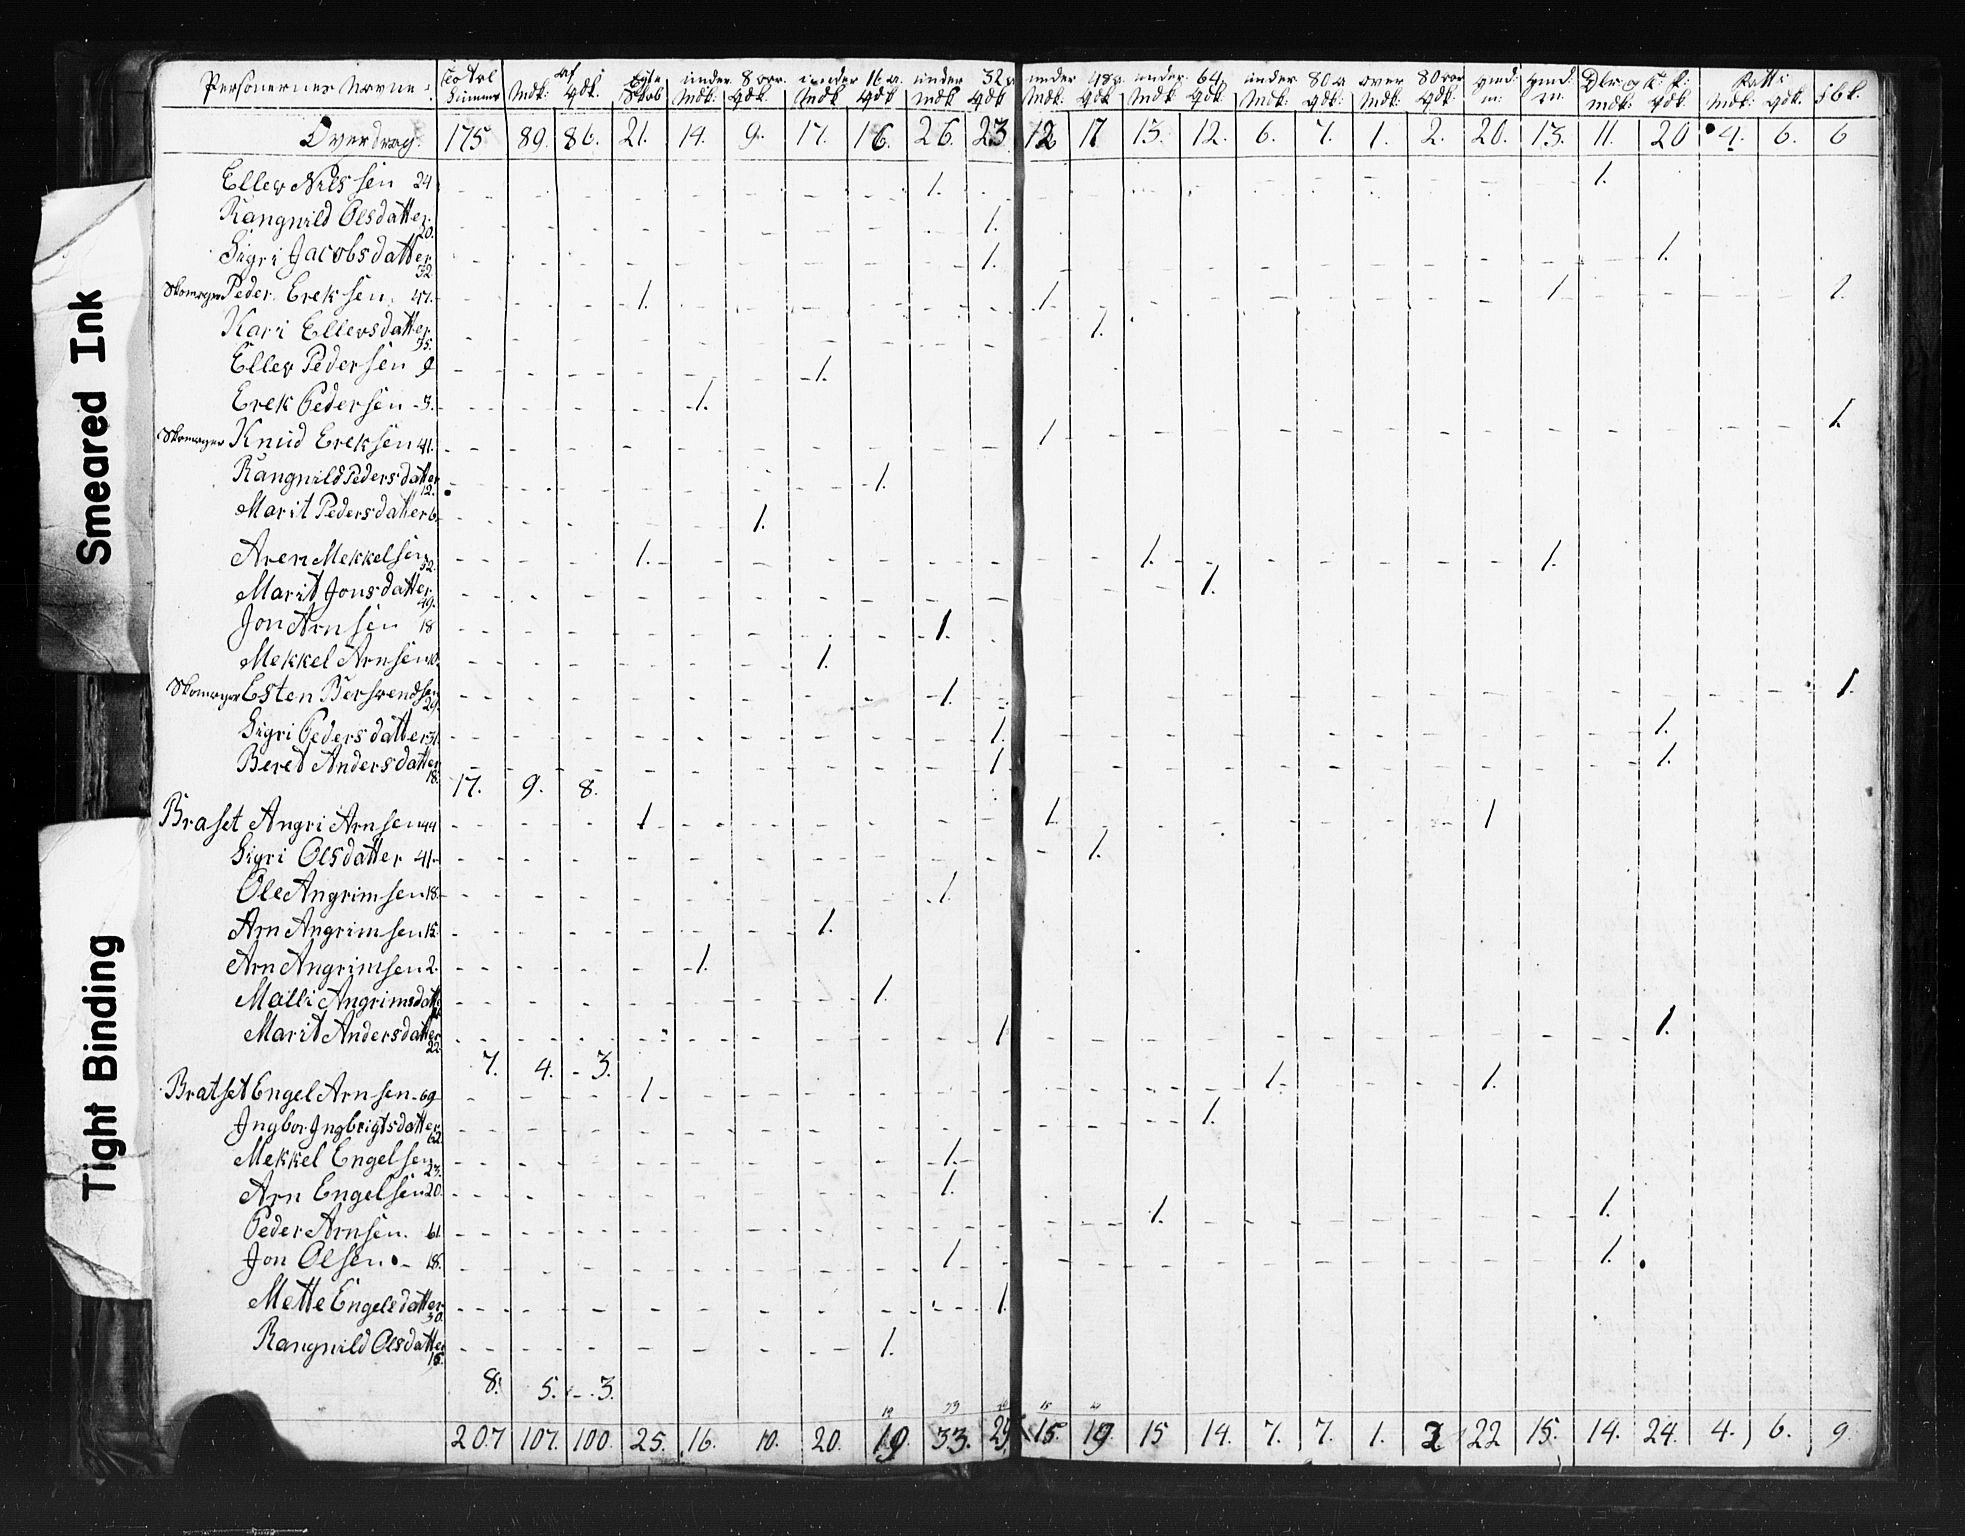 Smeared Ink
Tight Binding
Personernes Navne
Total Summer Mdk: af Qdk: under 8 aar. Mdk: Qdk. under 16 a. Mdk Qdk under 32 a. Mdk Qdk under 48 a. Mdk: Qdk under 64. Mdk. Qdk. under 80 a Mdk. Qdk: over 80 aar Mdk: Qdk:
Overdrag. 175 89. 86. 21. 14. 9. 17. 16. 26. 23 12 17 13. 12. 6. 7. 1. 2. 20. 13. 11. 20 4. 6. 6
Ellev Nilssen 24 1. 1.
Rangnild Olsdatter 20. 1.
Sigri Jacobsdatter 32 1. 1.
Peder Ereksen. 47. 1. 1 1 1.
Kari Ellevsdatter 35. 1.
Ellev Pedersen 9 1.
Erek Pedersen 3. 1.
Knud Ereksen 41. 1 1.
Rangnild Pedersdatter 12. 1.
Marit Pedersdatter 6 1.
Aren Mekkelsen 52. 1. 1. 1.
Marit Jonsdatter 49. 1.
Jon Arnsen 18 1.
Mekkel Arnsen 10. 1.
Esten Bersvendsen 29. 1. 1.
Sigri Pedersdatter 31. 1. 1.
Beret Andersdatter 18. 1 1.
17. 9. 8.
Braset Angri Arnsen 44 1 1. 1
Sigri Olsdatter 41 1.
Ole Angrimsen 18. 1.
Arn Angrimsen 15. 1.
Arn Angrimsen 2. 1.
Malli Angrimsdatt 1.
Marit Andersdatter 22 1 1.
7. 4. 3.
Bratset Engel Arnsen 69 1 1. 1.
Ingbor Ingbrigtsdatter 62 1.
Mekkel Engelsen 23. 1.
Arn Engelsen 20. 1.
Peder Arnsen. 61. 1. 1.
Jon Olsen 18. 1. 1.
Mette Engelsdatter 30. 1.
Rangnild Olsdatter 15. 1.
8. 5. 3.
207 107. 100. 25. 16. 10. 20. 19 33. 29. 15. 19 15 14. 7. 7. 1. 2 22 15. 14. 24. 4. 6. 9.